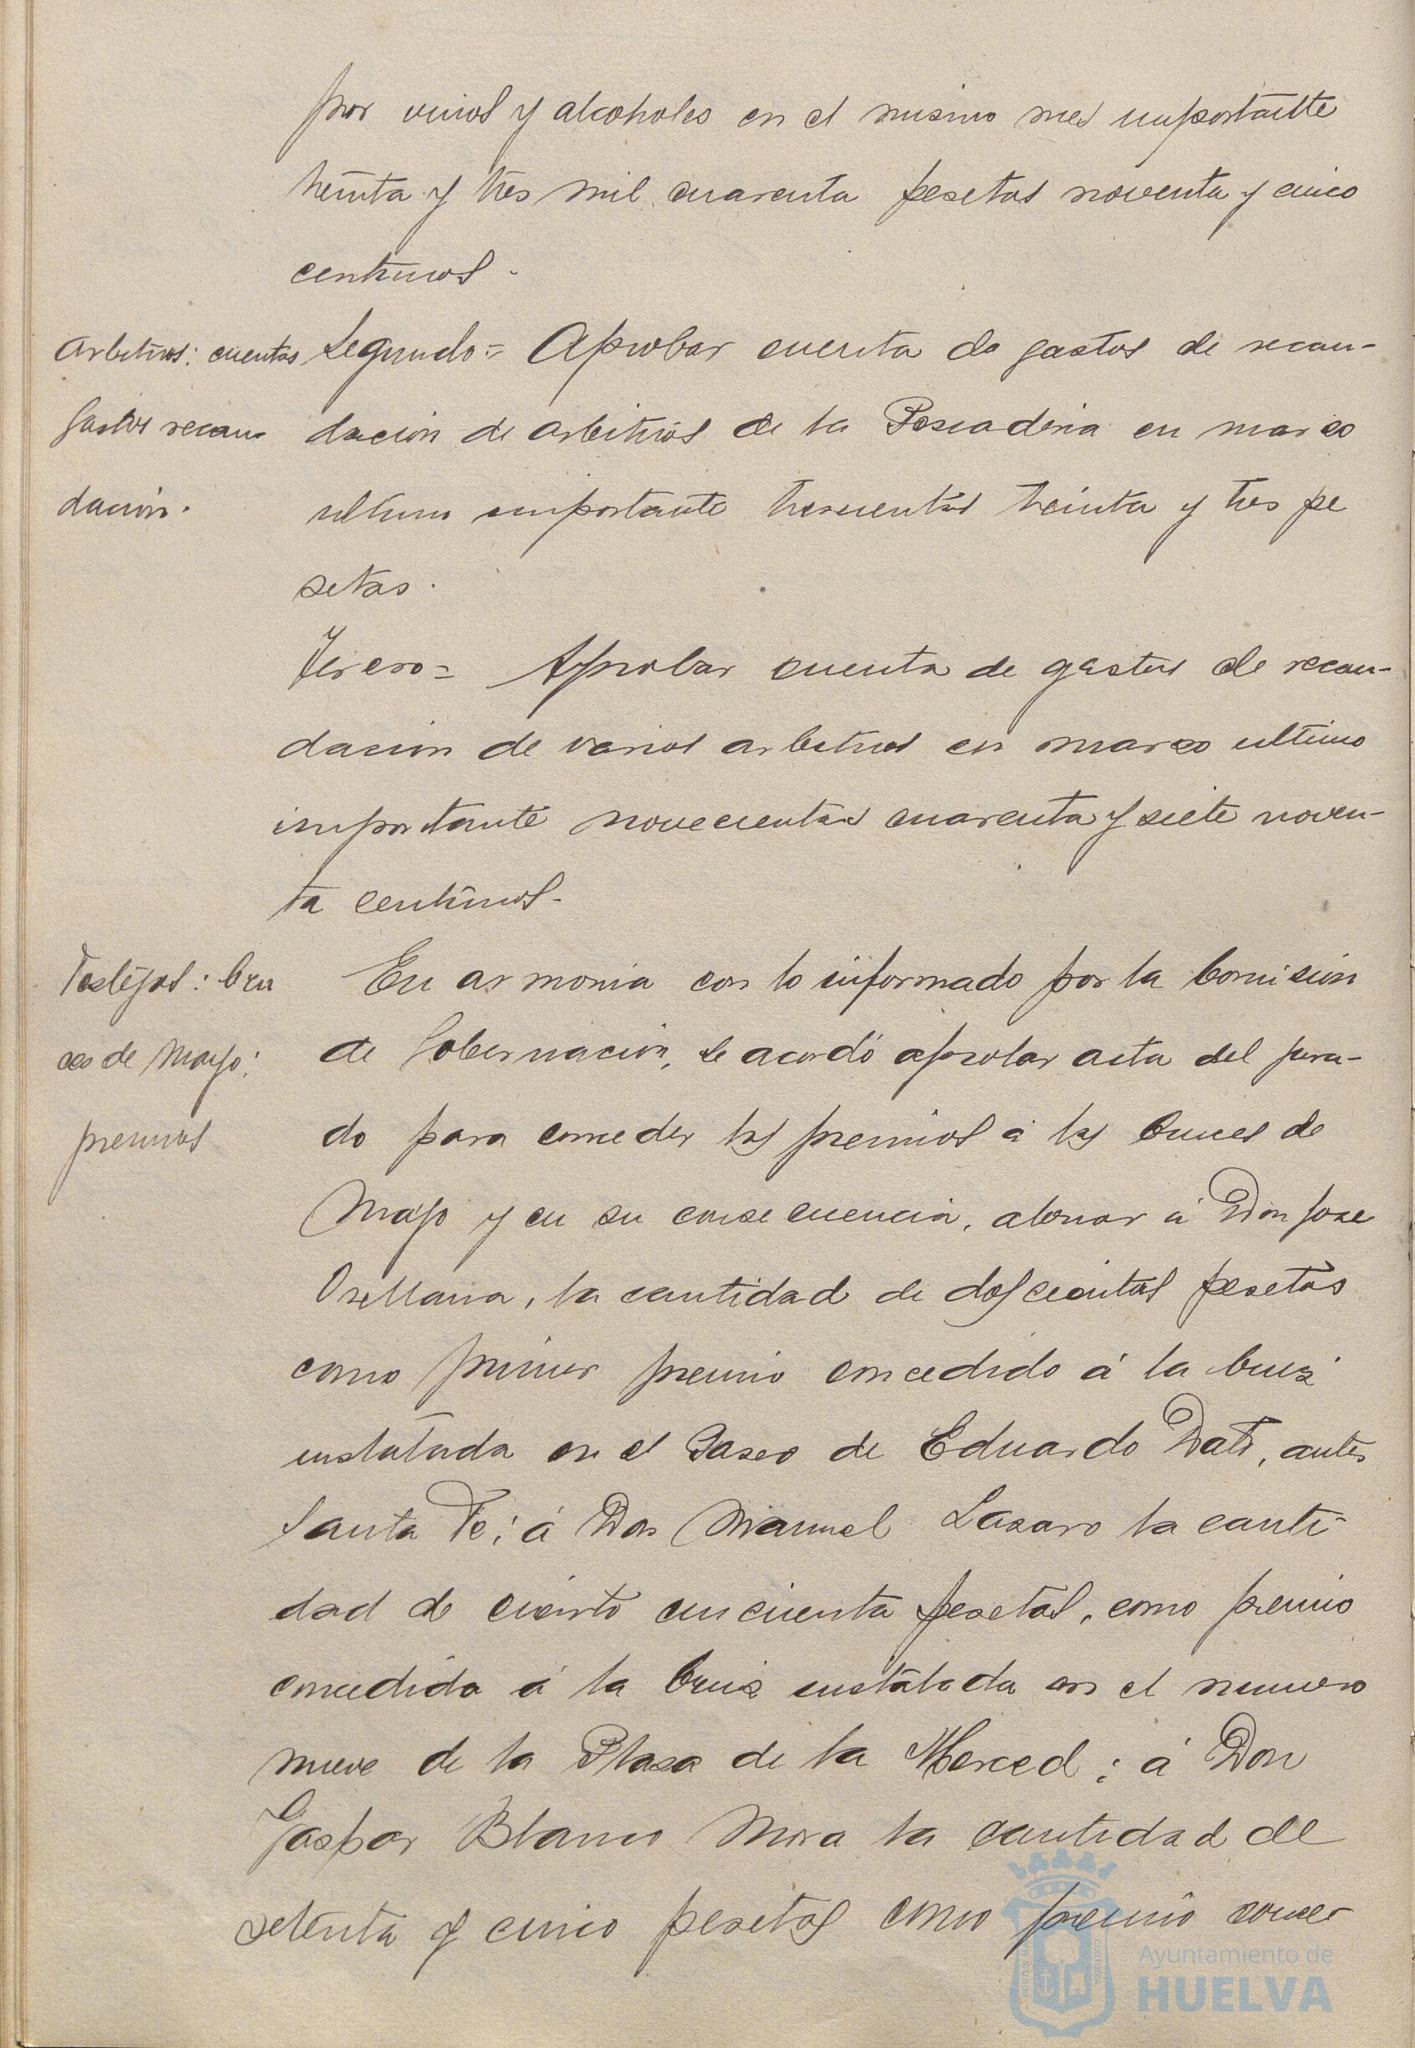 por vinos y alcoholes en el mismo mes importante
treinta y tres mil cuarenta pesetas noventa y cinco
centimos.
Arbitrios: cuentas
gastos recau-
dación.
Segundo= Aprobar cuenta de gastos de recau-
dación de arbitrios de la Pescaderia en marzo
ultimo importante trescientas treinta y tres pe
setas.
Tercero= Aprobar cuenta de gastos de recau-
dación de varios arbitrios en marzo ultimo
importante novecientas cuarenta y siete noven-
ta centimos.
Festejos: Cru
ces de Mayo:
premios
En armonia con lo informado por la Comisión
de Gobernación, se acordó aprobar acta del jura-
do para conceder los premios á las Cruces de
Mayo y en su consecuencia, abonar á Don Jose
Orellana, la cantidad de doscientas pesetas
como primer premio concedido á la Cruz
instalada en el Paseo de Eduardo Dato, antes
Santa Fe; á Don Manuel Lazaro la canti-
dad de ciento cincuenta pesetas, como premio
concedido á la Cruz instalada en el numero
nueve de la Plaza de la Merced; á Don
Gaspar Blanco Mora la cantidad de
setenta y cinco pesetas como premio conce-
Ayuntamiento de
HUELVA